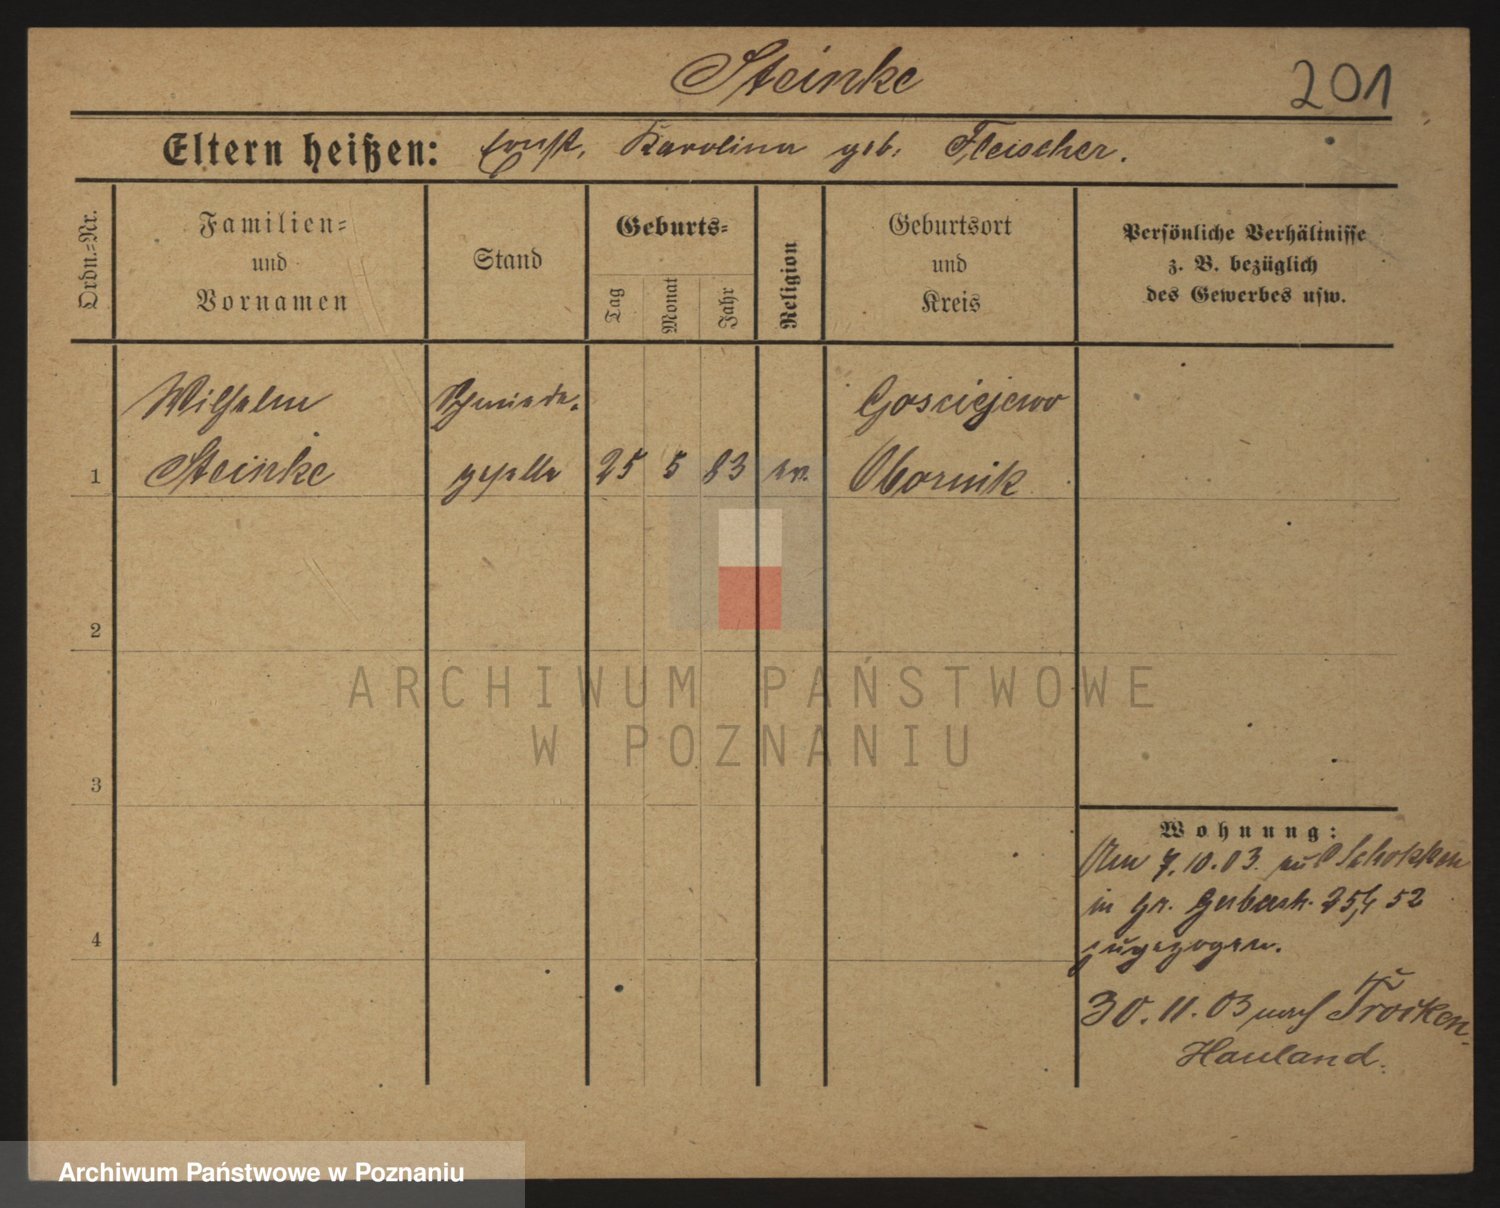 Steinke
201
Eltern heißen: Ernst, Karolina geb. Fleischer.
Ordn.-Nr.
Familien-
und
Vornamen
Stand
Geburts-
Tag
Monat
Jahr
Religion
Geburtsort
und
Kreis
Persönliche Verhältnisse
z. B. bezüglich
des Gewerbes usw.
Wilhelm
Schmiede-
Gosciejewo
1
Steinke
geselle
25
5
83
ev.
Obornik
2
ARCHIWUM PAŃSTWOWE
W POZNANIU
3
Wohnung:
Am 7.10.03. Schokken
in Gr. Gerberstr. 52
4
zugezogen.
30.11.03 nach Trocken-
Hauland.
Archiwum Państwowe w Poznaniu